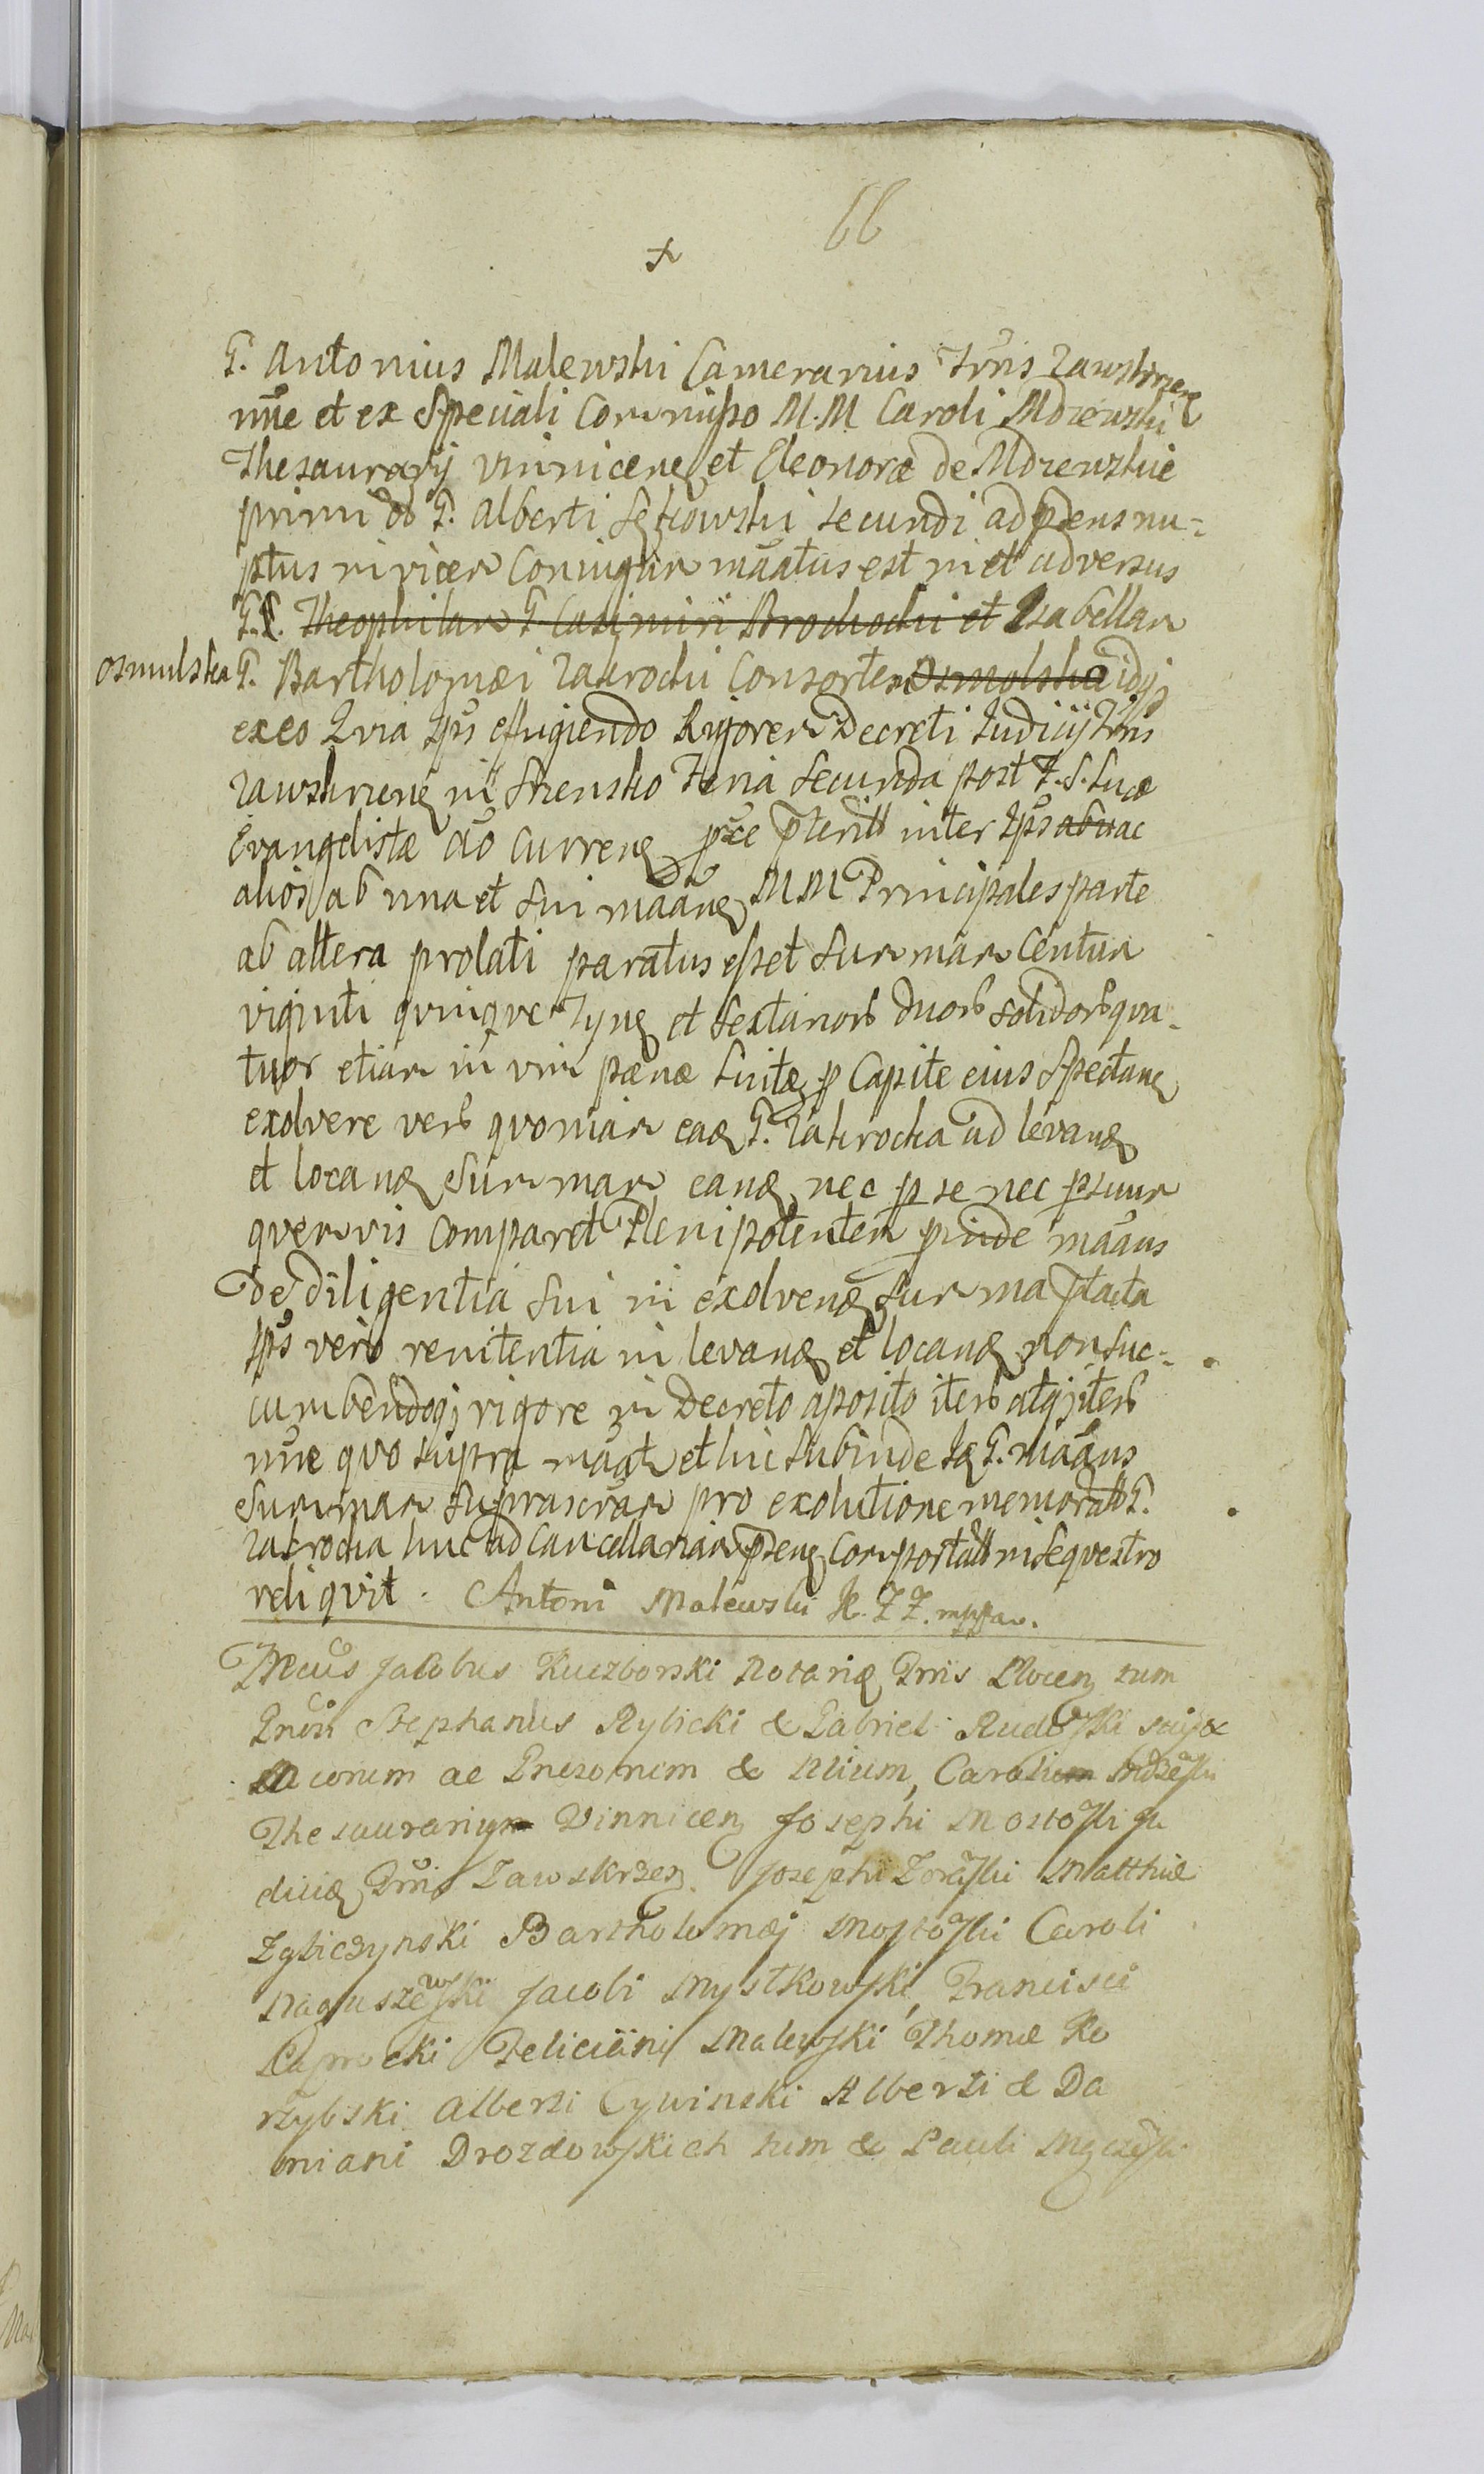 66
G. Antonius Malewski Camerarius Trris Zawskrzen
nne et ex Speciali Commisso M. M Caroli Mdzewski
Thesaurarij Vinnicen et Eleonoræ de Mdzewskie
primi ob G. Alberti secundi ad pṡens nu-
ptus Coniugum maatus est et adversus
G.G. Theophilam G. Casimiri Brochocki et Isabellam
osmulska G. Bartholomæi Zakrocki Consortem Osmolska idq;
exeo Qvia Ips effugiendo Rigorem Decreti Judicij Trris
Zawskrzen in Srensko Feria Secunda post F. S. Lucæ
Evangelistæ Ao Curren inter Ips ac
alios ab una et sui maan M M Principales parte
ab altera prolati paratus esset Summam Centum
viginti qvinqve Tyn et sextanorb duorb solidorb qva-
tuor etiam in vim pœnæ luitæ p Capite eius Spectan
exolvere verb qvoniam ead G. Zakrocka ad levand
et locand Summam eand nec p se nec p suum
qvemvis Comparet Plenipotentem pinde maans
De diligentia sui in exolvend Summa
Ips vero renitentia in levand et locand non suc-
cumbendoq; rigore in Decreto aposito iterb atq; iterb
nne qvo supra maat et hic subinde Id G. maans
Summam suprascram pro exolutione memorat G.
Zakrocka huc ad Cancellariam psen Comportatt in Seqvestro
reliqvit. Antoni Malewski K. Z Z. mppa.
Jacobus Kuczborski Notari Trris Plocen tum
Stephanus Rybicki & Gabriel
Mcorum ac Gnrsorum & Nlium, Carolium
Thesaurarium Vinnicen Josephi Mosto
dici Trris Zawskrzen. Josephi Matthiæ
Zgliczynski Bartholomæj Caroli
Naguszewski Jacobi Mystkowski, Francisci
Paprocki Feliciani Malewski Thomæ Ko
rzybski Alberti Cywinski Alberti & Da
miani Drozdowskich tum & Pauli